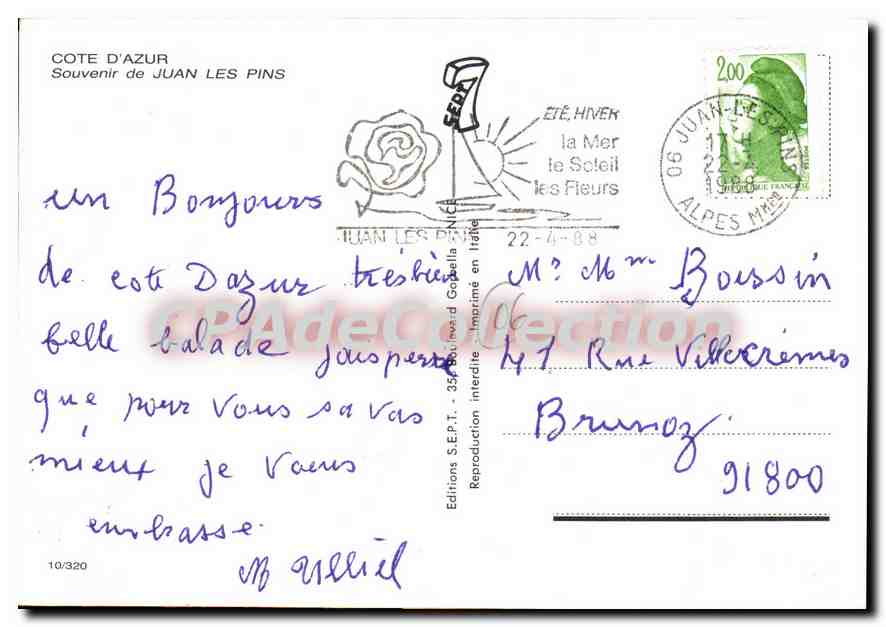 COTE D'AZUR
Souvenir de JUAN LES PINS
SEPT
ÉTÉ, HIVER
la Mer
le Soleil
les Fleurs
JUAN LES PINS 22-4-88
2,00
REPUBLIQUE FRANÇAISE
06 JUAN-LES-PINS
17 H
22-4
1988
ALPES MMES
un Bonjours
de cote Dazur trésbien
belle balade jaispere
que pour vous sa vas
mieux je Vous
embrasse.
10/320
Editions S.E.P.T. - 35, Boulevard Gorbella - NICE
Reproduction interdite - Imprimé en Italie
06
Mr Mme Boissin
41 Rue Villecrèmes
Brunoz.
91800
CPAdeCollection